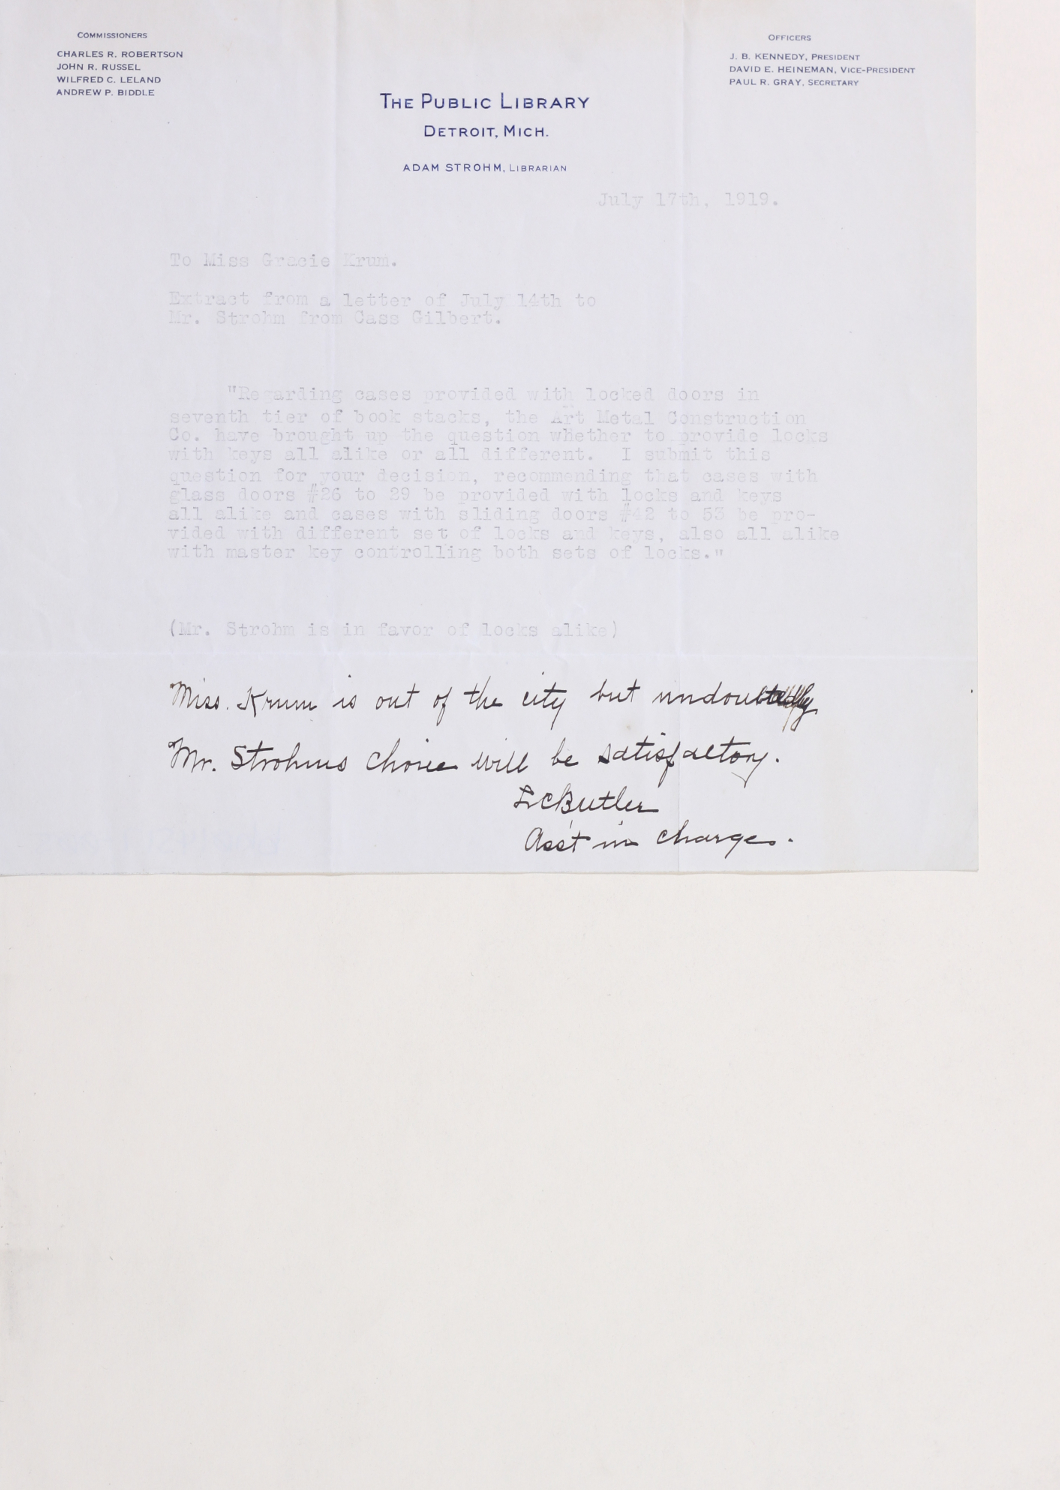 COMMISSIONERS
CHARLES R. ROBERTSON
JOHN R. RUSSEL
WILFRED C. LELAND
ANDREW P. BIDDLE
OFFICERS
J. B. KENNEDY, PRESIDENT
DAVID E. HEINEMAN, VICE-PRESIDENT
PAUL R. GRAY, SECRETARY
THE PUBLIC LIBRARY
DETROIT, MICH.
ADAM STROHM, LIBRARIAN
July 17th, 1919.
To Miss Gracie Krum.
Extract from a letter of July 14th to
Mr. Strohm from Cass Gilbert.
"Regarding cases provided with locked doors in
seventh tier of book stacks, the Art Metal Construction
Co. have brought up the question whether to provide locks
with keys all alike or all different. I submit this
question for your decision, recommending that cases with
glass doors #26 to 29 be provided with locks and keys
all alike and cases with sliding doors #42 to 53 be pro-
vided with different set of locks and keys, also all alike
with master key controlling both sets of locks."
(Mr. Strohm is in favor of locks alike)
Miss. Krum is out of the city but undoubtedly
Mr. Strohms choice will be satisfactory.
L C Butler
Ass't in charge.